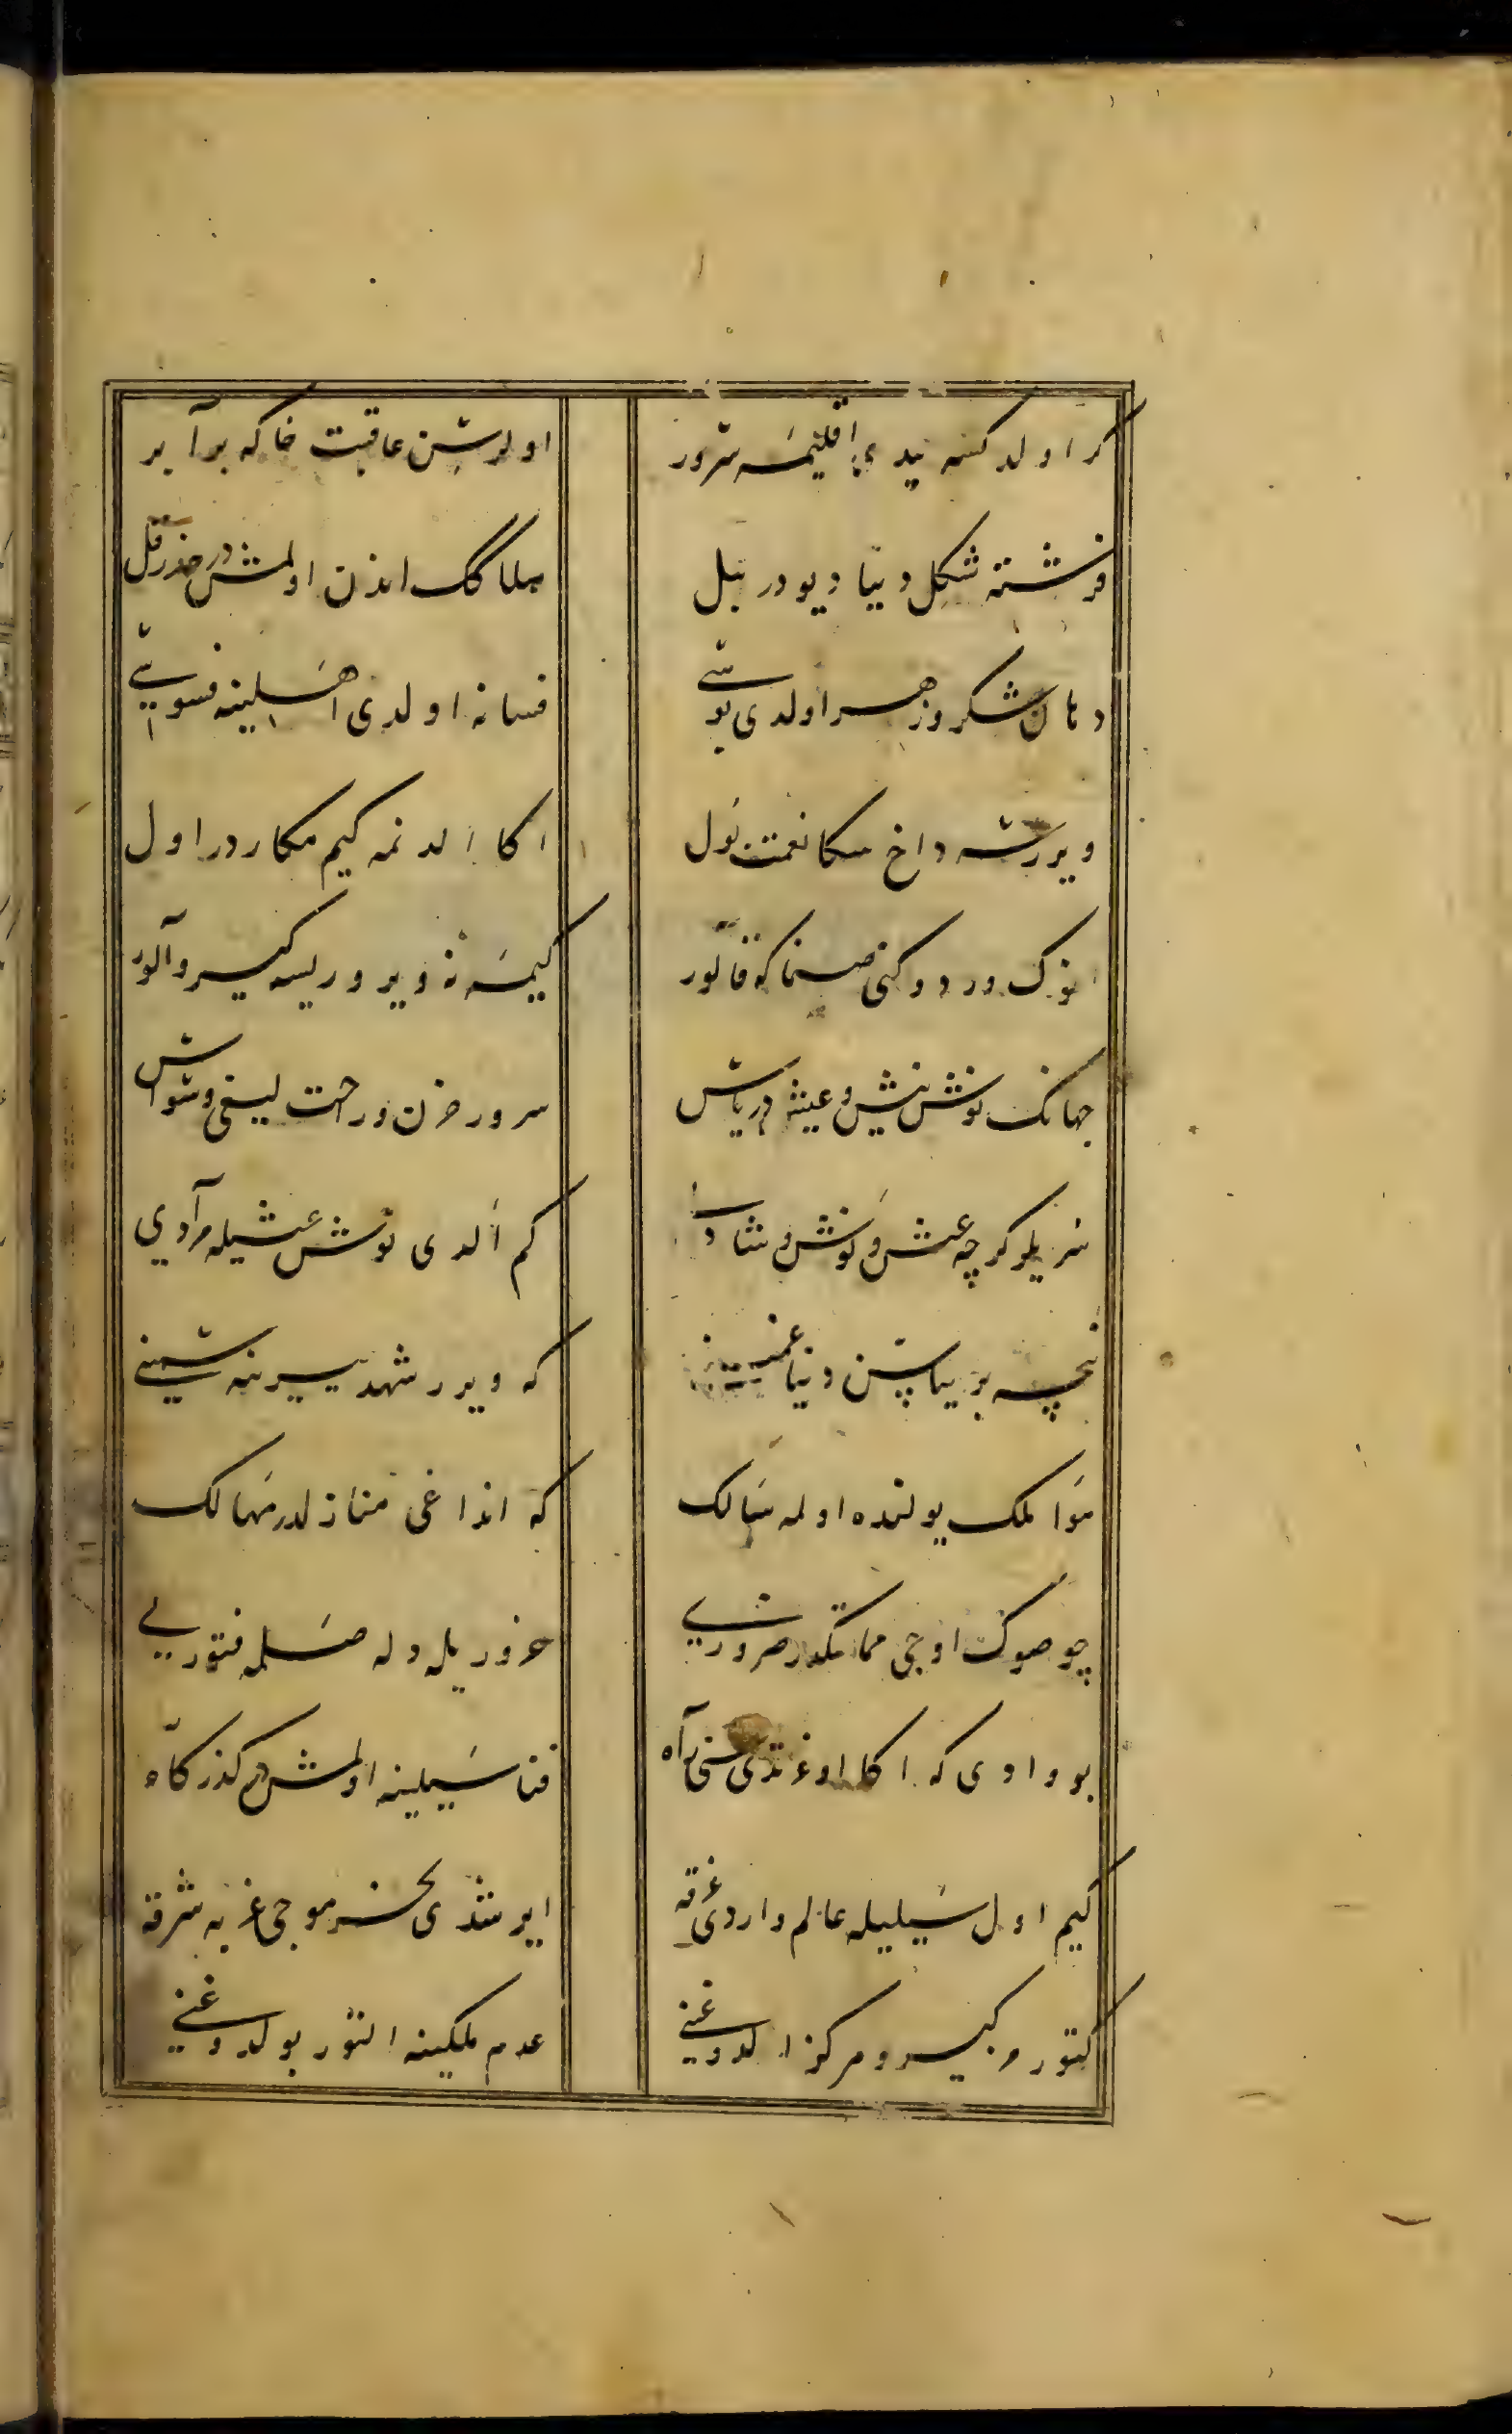 کر اولدکسه یدی اقلیمه سرور
اولرسن عاقبت خاکه برابر
فرشته شکل دنیا دیودر بیل
سکا اندن اولمشدر حذر قل
دهان شکر و زهر اولدی بوسی
فسانه اولدی اهلینه فسوسی
ویررسه داخی سکا نعمت بول
اکا الدنمه کیم مکاردر اول
صنما که قالور
کیمسه نه ویرورسه کیرو آلور
جهانک نوش نیش و عیشدر یاس
سرور حزن و راحت لیغی وسواس
کرچه عیش و نوش و شادی
کم آلدی نوش عیشیله مرادی
نیجه بر یاپسن دنیا
که ویرر شهد یرینه
هوا ملک یولنده اولمه سالک
که انداغی منازلدر مهالک
چو صوک اوجی مماتکدر ضروری
غروریله دله صلمه فتوری
بو وادی که اکا اوغرتدی سنی آه
فنا سیلینه اولمشدر کذرکاه
کیم اول سیلیله عالم واردی غرقه
ایرشدی بحر موجی غربه شرقه
کتورمر کیرو مرکز الدوغنی
عدم ملکینه التور بولدوغنی